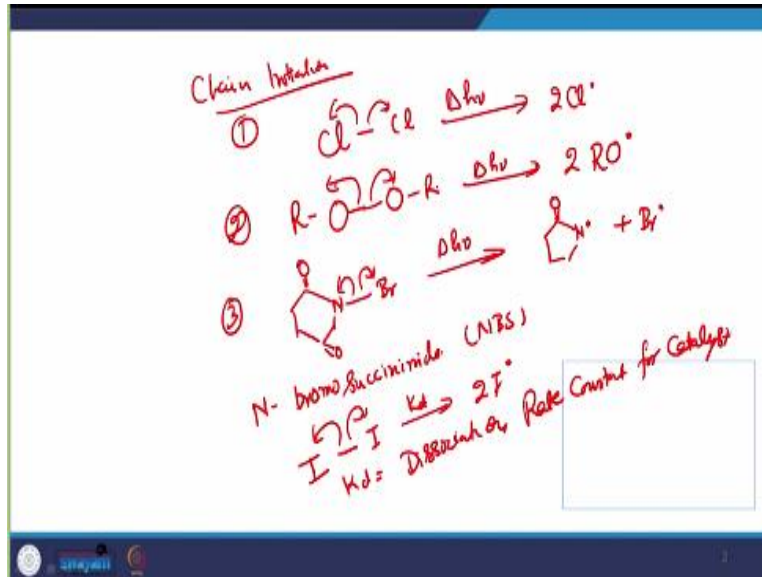 Chain Initiation
① Cl – Cl Δhν → 2Cl•
② R – O – O – R Δhν → 2 RO•
③ O N – Br O Δhν → O N• + Br•
N- bromo succinimide (NBS)
I – I Kd → 2I•
Kd = Dissociation Rate Constant for Catalyst
swayam
2